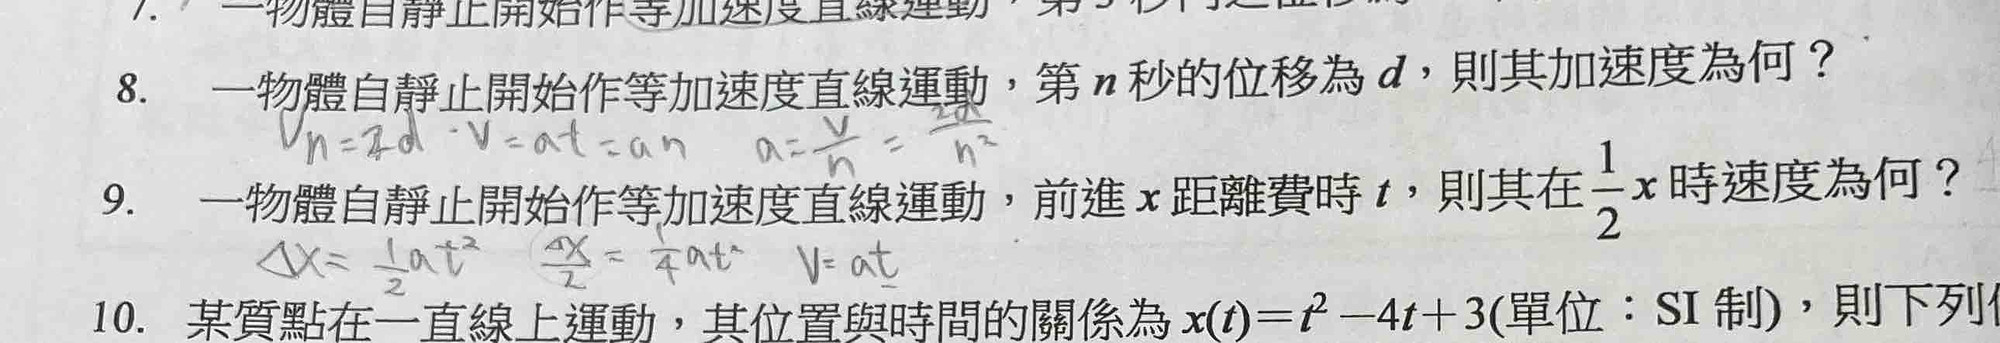 7. 一物體自靜止開始作等加速度直線運動,第
8. 一物體自靜止開始作等加速度直線運動,第 n 秒的位移為 d,則其加速度為何?
Vn=2d · V=at=an a=v/n = 2d/n²
9. 一物體自靜止開始作等加速度直線運動,前進 x 距離費時 t,則其在 1/2 x 時速度為何?
△x= 1/2 at² △x/2 = 1/4 at² V=at
10. 某質點在一直線上運動,其位置與時間的關係為 x(t)=t²-4t+3(單位:SI 制),則下列